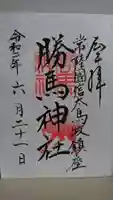 奉拝
常陸國信太馬牧鎮座
勝馬神社
令和二年六月二十一日